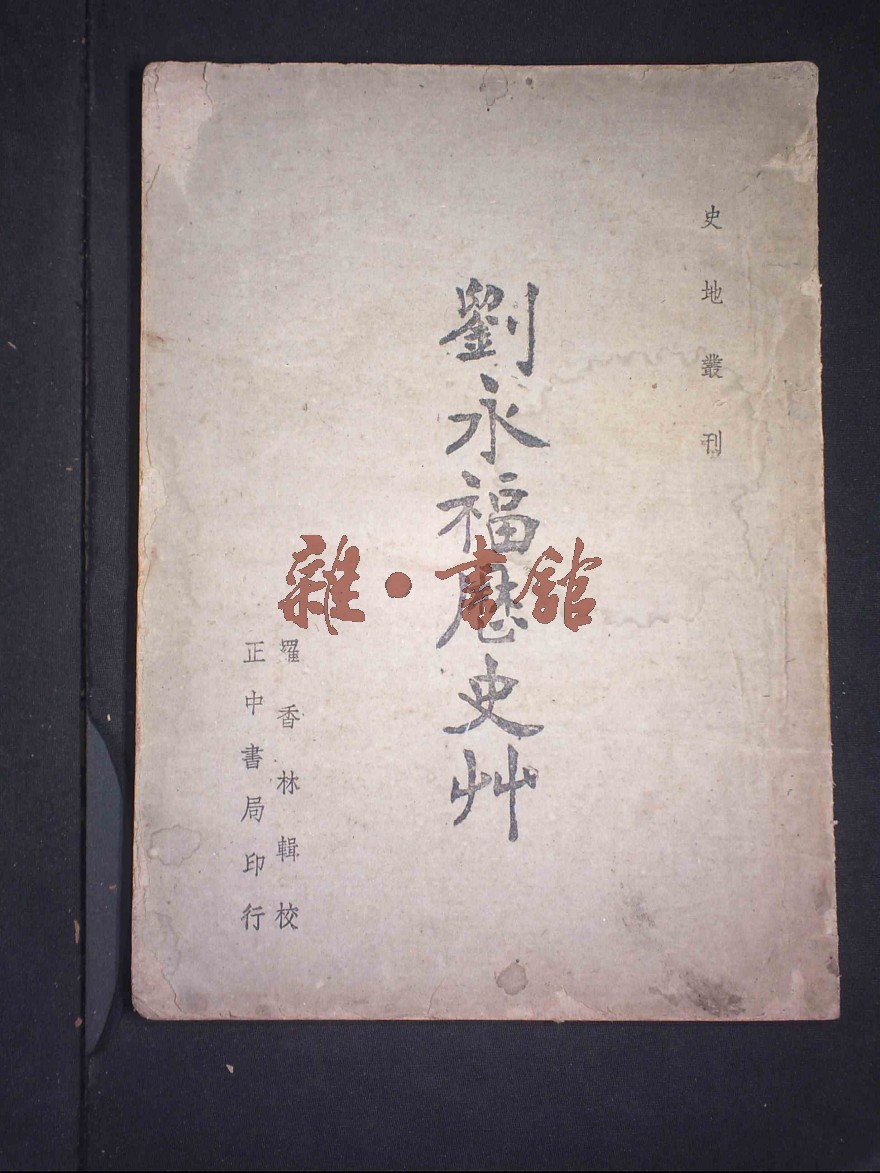 史地叢刊
劉永福歷史艸
羅香林輯校
正中書局印行
雜·書館